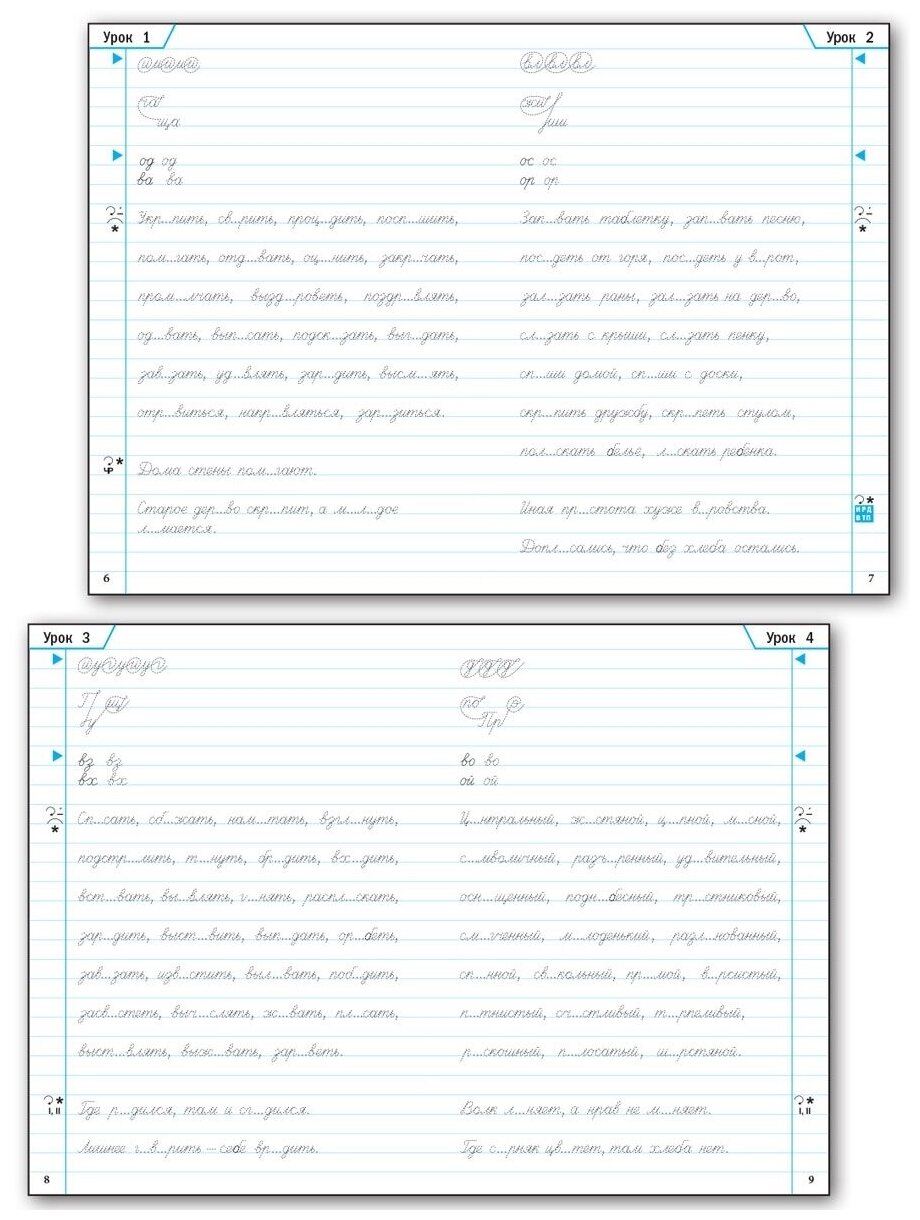 Урок 1
ча
ща
од од
ва ва
Укр...пить, св...рить, проц...дить, посп...шить,
пом...гать, отд...вать, оц...нить, закр...чать,
пром...лчать, вызд...роветь, поздр...влять,
од...вать, вып...сать, подск...зать, выг...дать,
зав...зать, уд...влять, зар...дить, высм...ять,
отр...виться, напр...вляться, зар...зиться.
ЧР
Дома стены пом...гают.
Старое дер...во скр...пит, а м...л...дое
л...мается.
6
Урок 2
жи
ши
ос ос
ор ор
Зап...вать таблетку, зап...вать песню,
пос...деть от горя, пос...деть у в...рот,
зал...зать раны, зал...зать на дер...во,
сл...зать с крыши, сл...зать пенку,
сп...ши домой, сп...ши с доски,
скр...пить дружбу, скр...петь стулом,
пол...скать белье, л...скать ребенка.
Иная пр...стота хуже в...ровства.
И Р Д
В Т П
Допл...сались, что без хлеба остались.
7
Урок 3
вз вз
вх вх
Сп...сать, сб...жать, нам...тать, взгл...нуть,
подстр...лить, т...нуть, бр...дить, вх...дить,
вст...вать, вы...влять, г...нять, распл...скать,
зар...дить, выст...вить, вып...дать, ор...беть,
зав...зать, изв...стить, выл...вать, поб...дить,
засв...стеть, выч...слять, ж...вать, пл...сать,
выст...влять, выж...вать, зар...веть.
I, II
Где р...дился, там и сг...дился.
Лишнее г...в...рить – себе вр...дить.
8
Урок 4
по о
Пр
во во
ой ой
Ц...нтральный, ж...стяной, ц...пной, м...сной,
с...мволичный, разъ...ренный, уд...вительный,
осн...щенный, подн...бесный, тр...стниковый,
см...гченный, м...лоденький, разл...нованный,
сп...нной, св...кольный, пр...мой, в...рсистый,
п...тнистый, сч...стливый, т...рпеливый,
р...скошный, п...лосатый, ш...рстяной.
I, II
Волк л...няет, а нрав не м...няет.
Где с...рняк цв...тет, там хлеба нет.
9